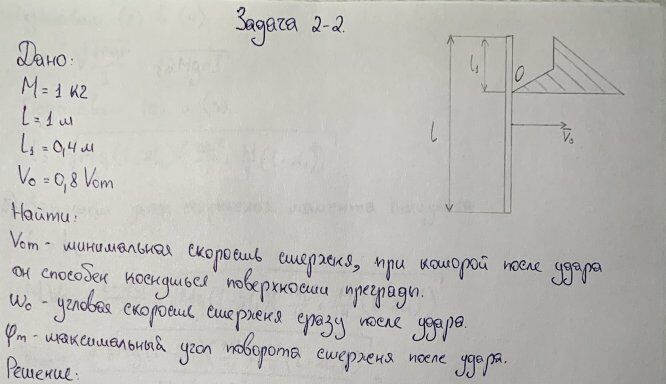 Задача 2-2.
Дано:
M = 1 кг
l = 1 м
l₁ = 0,4 м
V₀ = 0,8 V₀m
Найти:
V₀m - минимальная скорость стержня, при которой после удара
он способен коснуться поверхности преграды.
ω₀ - угловая скорость стержня сразу после удара.
φm - максимальный угол поворота стержня после удара.
Решение:
l₁
O
V₀
l